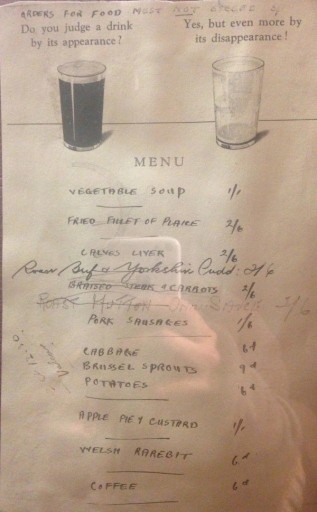 ORDERS FOR FOOD MUST NOT EXCEED
Do you judge a drink
by its appearance?
Yes, but even more by
its disappearance!
MENU
VEGETABLE SOUP 1/1
FRIED FILLET OF PLAICE 2/6
CALVES LIVER 2/6
Roast Beef & Yorkshire Pudd: 2/6
BRAISED STEAK & CARROTS 2/6
ROAST MUTTON SAUCE 2/6
PORK SAUSAGES 1/6
CABBAGE 6d
BRUSSEL SPROUTS 9d
POTATOES 6d
APPLE PIE & CUSTARD 1/1
WELSH RAREBIT 6d
COFFEE 6d